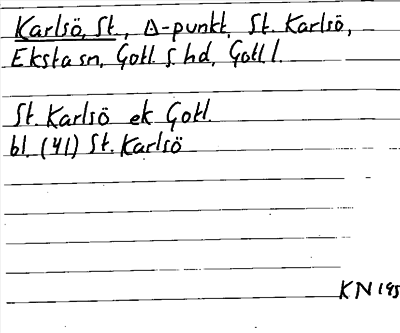 Karlsö, St, Δ-punkt, St. Karlsö,
Eksta sn, Gotl. S. hd, Gotl l.
St. Karlsö ek Gotl.
bl. (41) St. Karlsö
KN 195